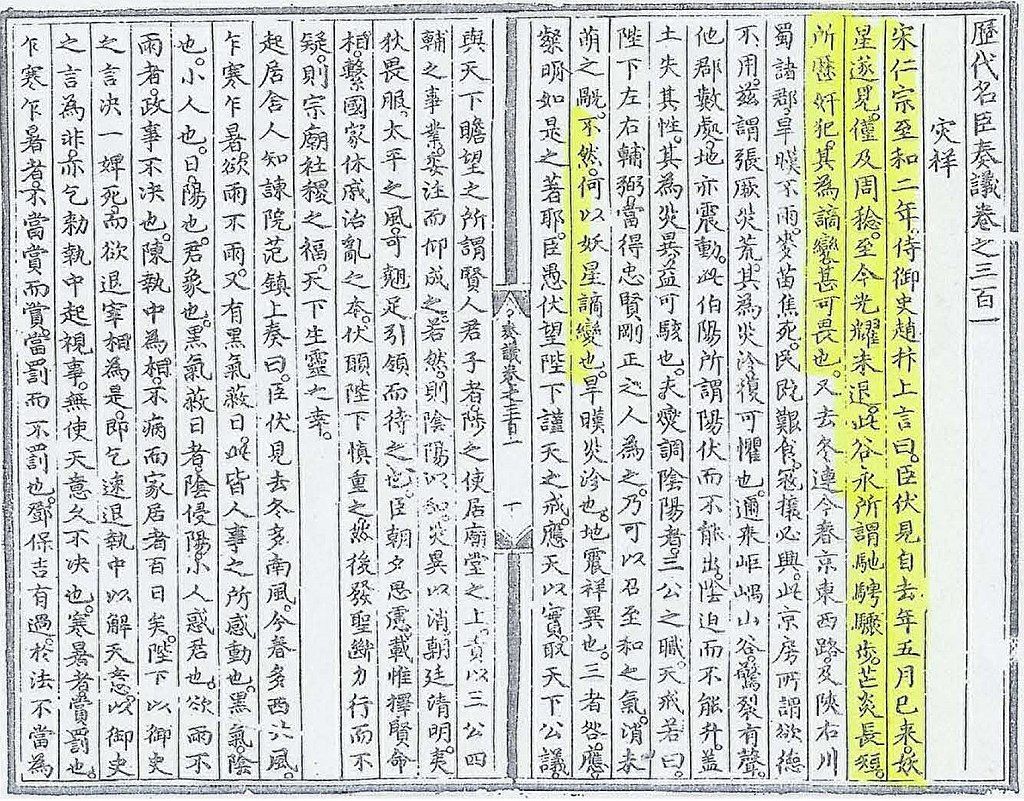 歷代名臣奏議卷之三百一
災祥
宋仁宗至和二年侍御史趙抃上言曰臣伏見自去年五月已來妖
星遂見僅及周稔至今光耀未退此谷永所謂馳騁驟步芒炎長短
所歷奸犯其為謫變甚可畏也又去冬連今春京東西路及陝右川
蜀諸郡旱暵不雨麥苗焦死民既艱食寇攘必興此京房所謂欲德
不用茲謂張厥災荒其為災沴復可懼也邇來岠嵎山谷驚裂有聲
他郡數處地亦震動此伯陽所謂陽伏而不能出陰迫而不能升蓋
土失其性其為災異益可駭也夫燮調陰陽者三公之職天戒若曰
陛下左右輔弼當得忠賢剛正之人為之乃可以召至和之氣消未
萌之眚不然何以妖星謫變也旱暵災沴也地震祥異也三者咎應
蔡明如是之著耶臣愚伏望陛下謹天之戒應天以實取天下公議
奏議卷之三百一
一
與天下瞻望之所謂賢人君子者陟之使居廟堂之上責以三公四
輔之事業委注而仰成之若然則陰陽以和災異以消朝廷清明夷
狄畏服太平之風可翹足引領而待之也臣朝夕思慮載惟擇賢命
相繫國家休戚治亂之本伏願陛下慎重之然後發聖斷力行而不
疑則宗廟社稷之福天下生靈之幸
起居舍人知諫院范鎮上奏曰臣伏見去冬多南風今春多西北風
乍寒乍暑欲雨不雨又有黑氣蔽日此皆人事之所感動也黑氣陰
也小人也日陽也君象也黑氣蔽日者陰侵陽小人惑君也欲雨不
雨者政事不決也陳執中為相不病而家居者百日矣陛下以御史
之言決一婢死而欲退宰相為是即乞速退執中以解天意以御史
之言為非亦乞勅執中起視事無使天意久不決也寒暑者賞罰也
乍寒乍暑者不當賞而賞當罰而不罰也鄧保吉有過於法不當為